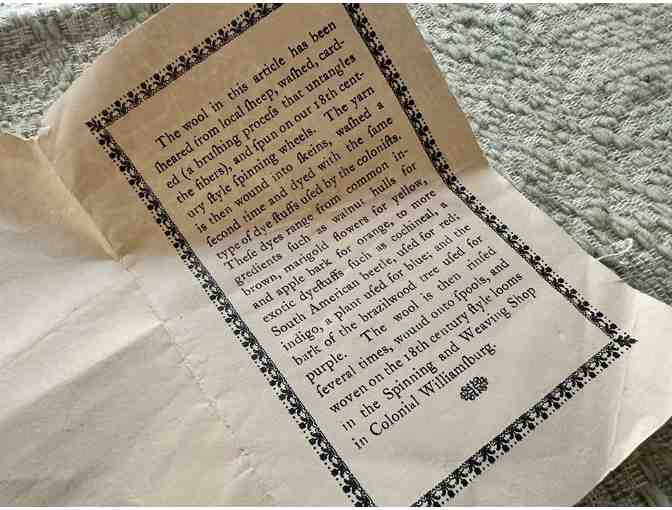 The wool in this article has been
ſheared from local ſheep, waſhed, card-
ed (a bruſhing proceſs that untangles
the fibers), and ſpun on our 18th cent-
ury ſtyle ſpinning wheels. The yarn
is then wound into ſkeins, waſhed a
ſecond time and dyed with the ſame
type of dye ſtuffs uſed by the coloniſts.
Theſe dyes range from common in-
gredients ſuch as walnut hulls for
brown, marigold flowers for yellow,
and apple bark for orange, to more
exotic dyeſtuffs ſuch as cochineal, a
South American beetle, uſed for red;
indigo, a plant uſed for blue; and the
bark of the brazilwood tree uſed for
purple. The wool is then rinſed
ſeveral times, wound onto ſpools, and
woven on the 18th century ſtyle looms
in the Spinning and Weaving Shop
in Colonial Williamſburg.